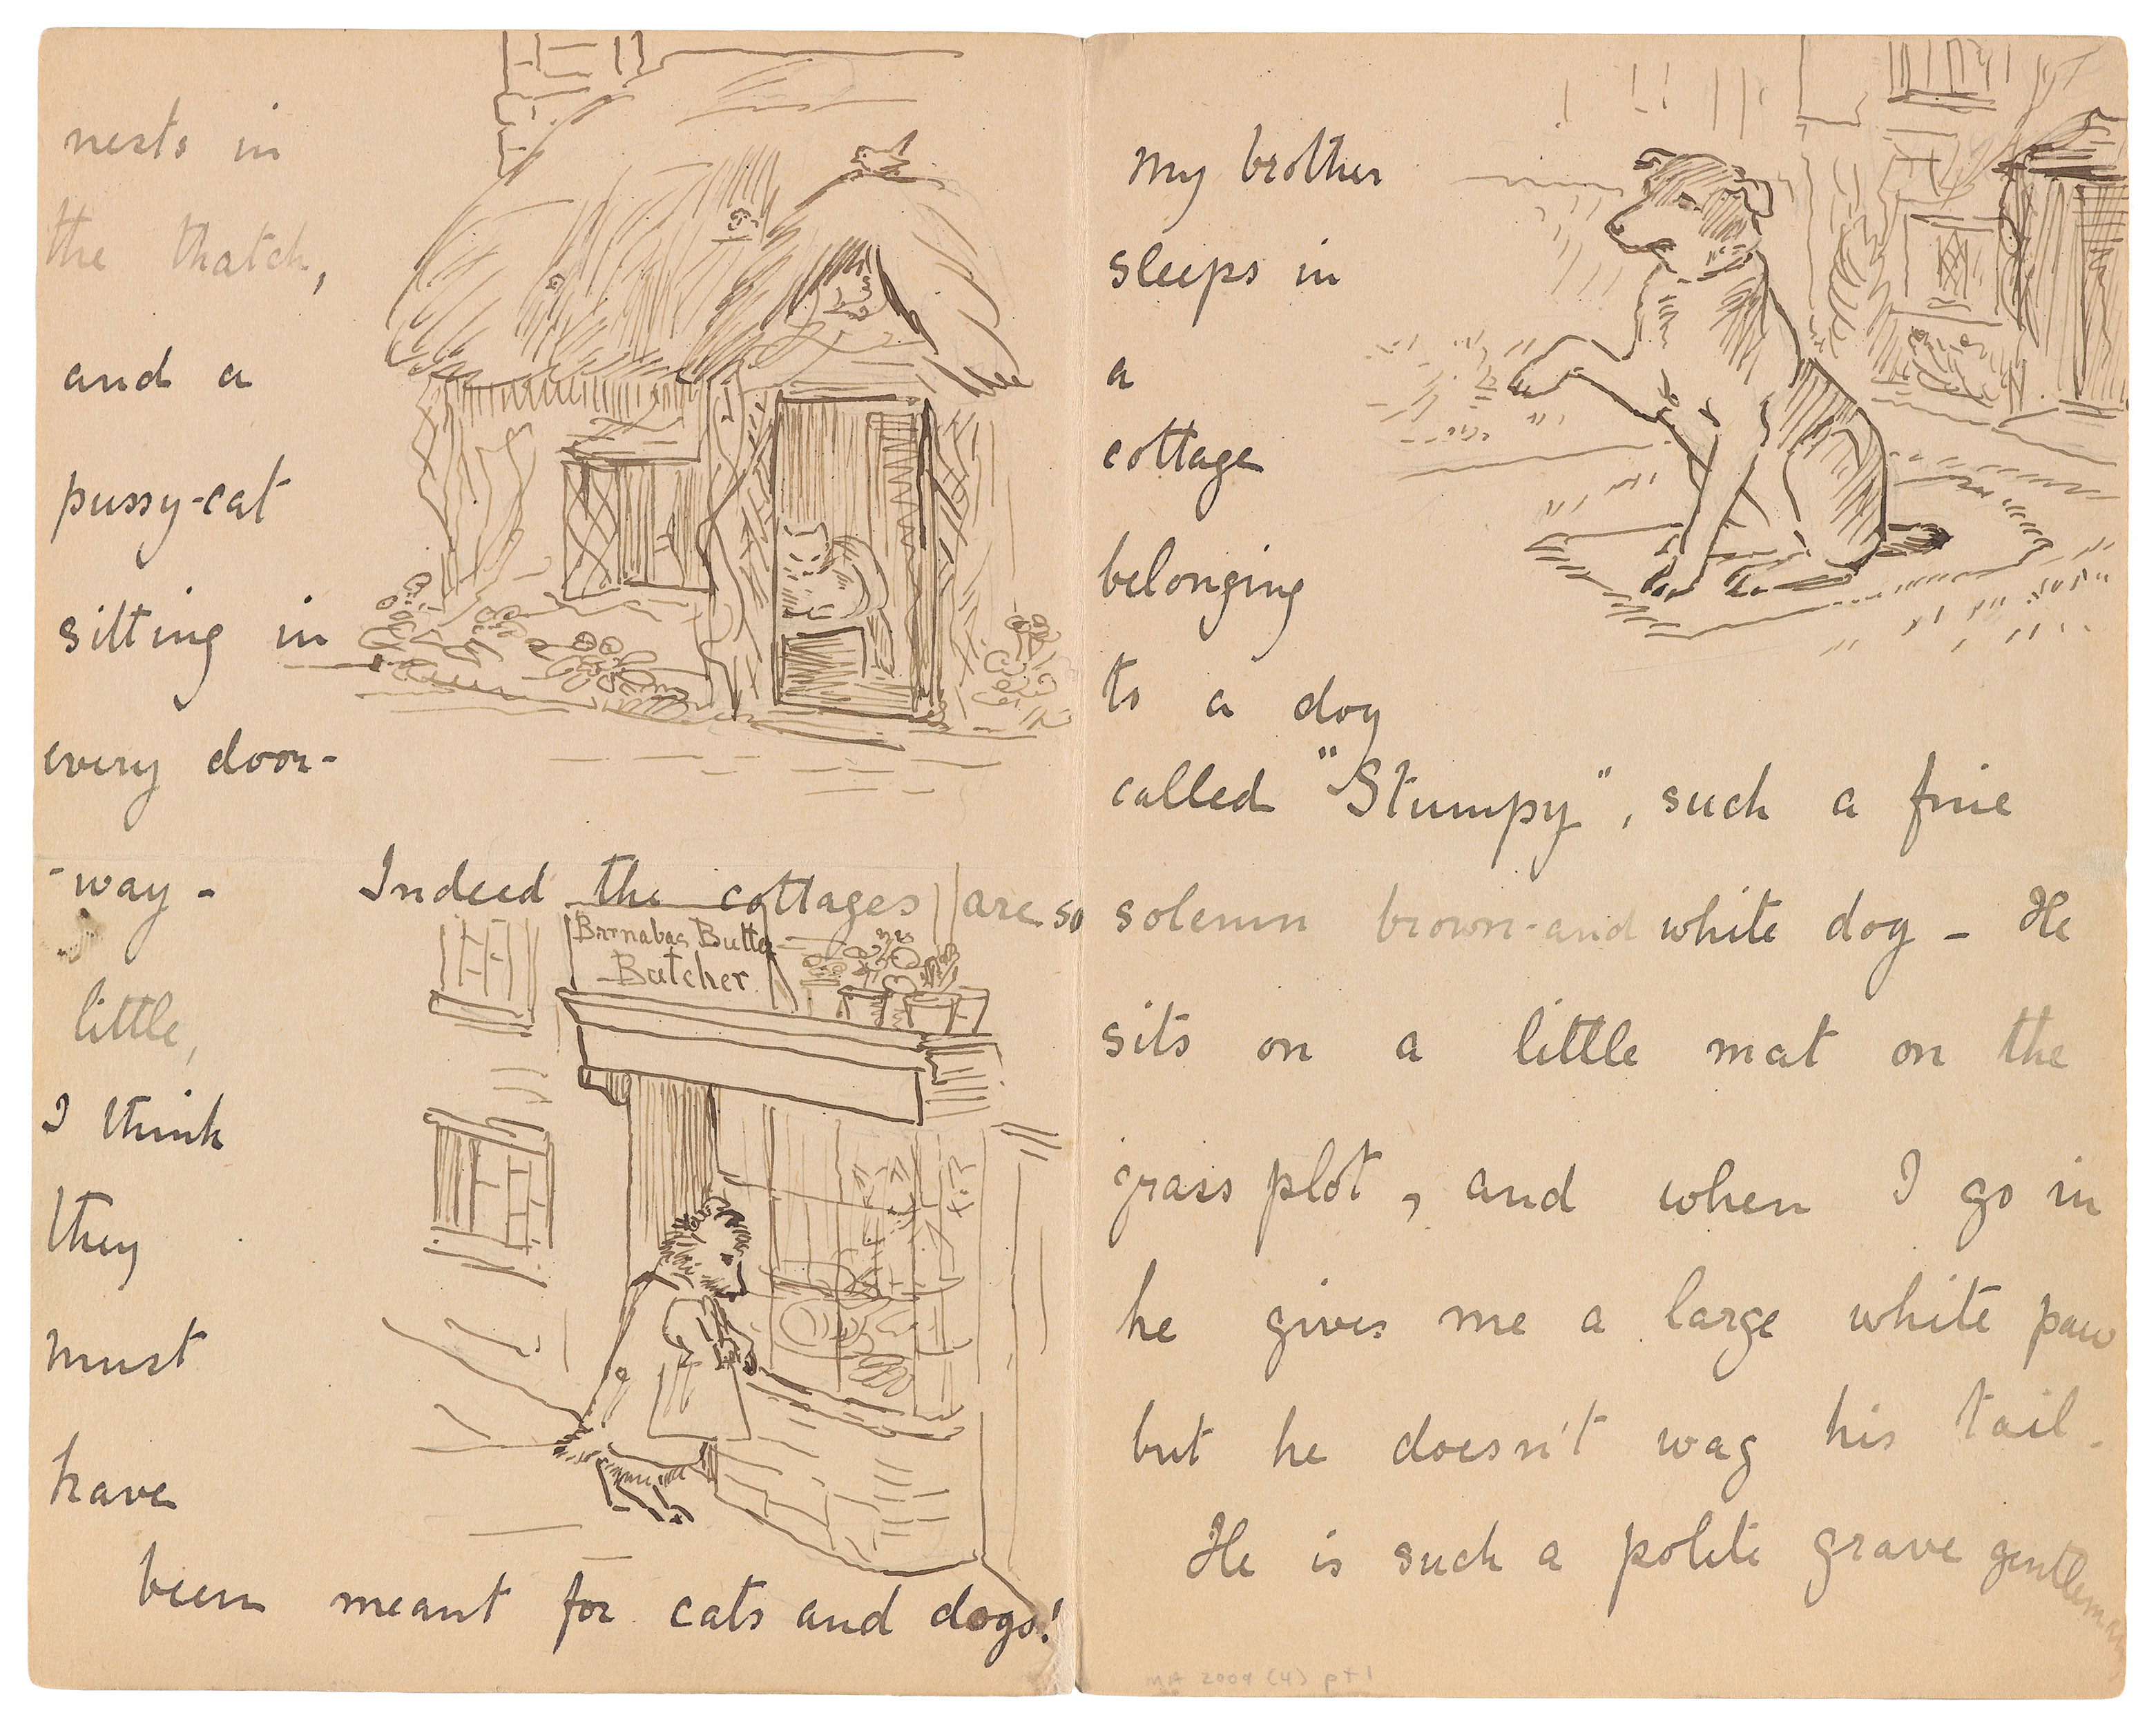 nests in
the thatch,
and a
pussy-cat
sitting in
every door-
-way - Indeed the cottages are so
Barnabas Butter
Butcher
little,
I think
they
must
have
been meant for cats and dogs!
my brother
sleeps in
a
cottage
belonging
to a dog
called "Stumpy", such a fine
solemn brown-and white dog - He
sits on a little mat on the
grass plot, and when I go in
he gives me a large white paw
but he doesn't wag his tail.
He is such a polite grave gentleman
MA 2009 (4) pt 1